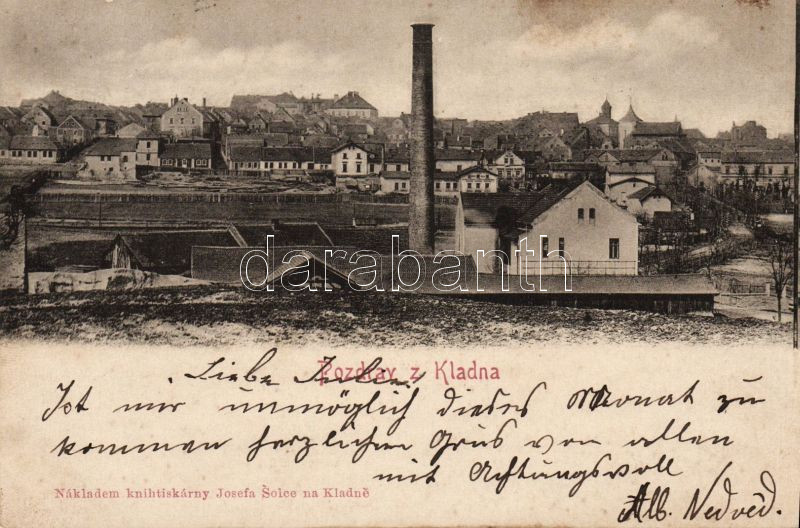 darabanth
Pozdrav z Kladna
Liebe
Ist mir unmöglich dieses Monat zu
kommen herzlichen Grüs von allen
mit Achtungsvoll
Nákladem knihtiskárny Josefa Šolce na Kladně
Alb. Nedvěd.